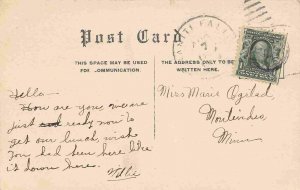 Post Card
THIS SPACE MAY BE USED FOR COMMUNICATION.
THE ADDRESS ONLY TO BE WRITTEN HERE.
Hello—
How are you, we are
just ready now to
get our lunch, wish
you had been here like
it down here.
Miss Marie
Montevideo
Minn